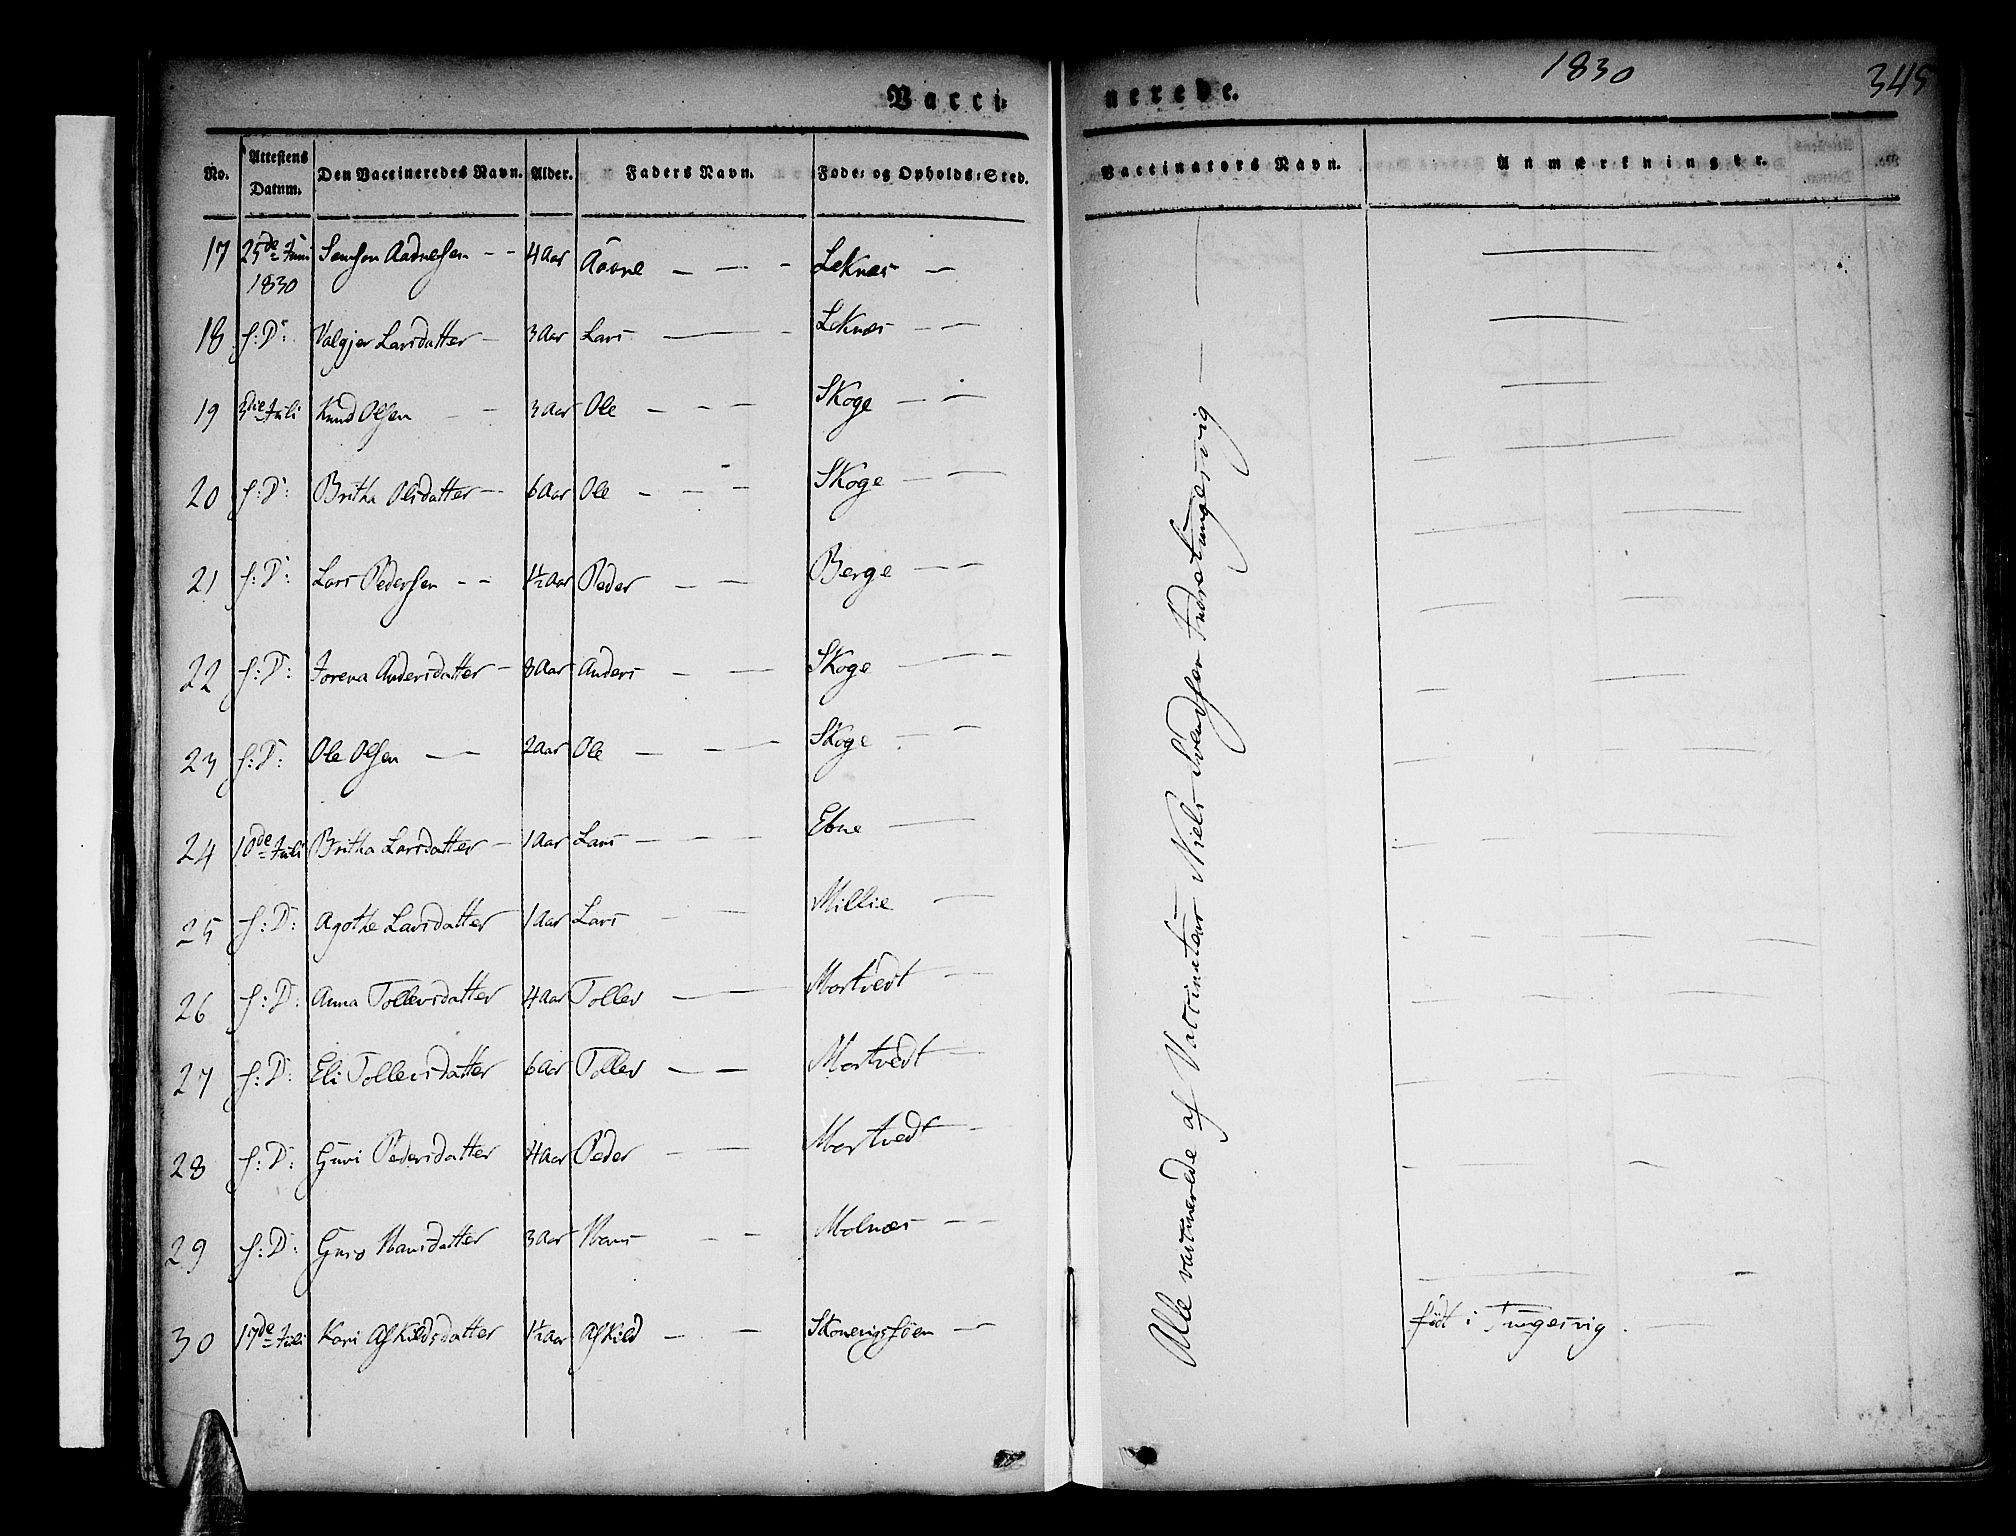 1830
345
Vaccinerede.
No. | Attestens Datum. | Den Vaccineredes Navn. | Alder. | Faders Navn. | Føde- og Opholds-Sted. | Vaccinators Navn. | Anmærkninger.
17 | 25de Juni 1830 | Samson Aadnesen | 4 Aar | Aadne | Leknæs
18 | s: D: | Valgjer Larsdatter | 3 Aar | Lars | Leknæs
19 | 3die Juli | Knud Olsen | 3 Aar | Ole | Skoge
20 | s: D: | Britha Olsdatter | 6 Aar | Ole | Skoge
21 | s: D: | Lars Pedersen | 1½ Aar | Peder | Berge
22 | s: D: | Andersdatter | 8 Aar | Anders | Skoge
23 | s: D: | Ole Olsen | 2 Aar | Ole | Skoge
24 | 10de Juli | Britha Larsdatter | 1 Aar | Lars | Ebne
25 | s: D: | Agothe Larsdatter | 1 Aar | Lars | Millie
26 | s: D: | Anna Tollevsdatter | 4 Aar | Tollev | Mortvedt
27 | s: D: | Eli Tollevsdatter | 6 Aar | Tollev | Mortvedt
28 | s: D: | Guri Pedersdatter | 4 Aar | Peder | Mortvedt
29 | s: D: | Guro Hansdatter | 3 Aar | Hans | Molnæs
30 | 17de Juli | Kari Askildsdatter | 1½ Aar | Askild | | | født i Tungesvig.
Alle vaccinerede af Vaccinateur Niels Svendsen Indretungesvig